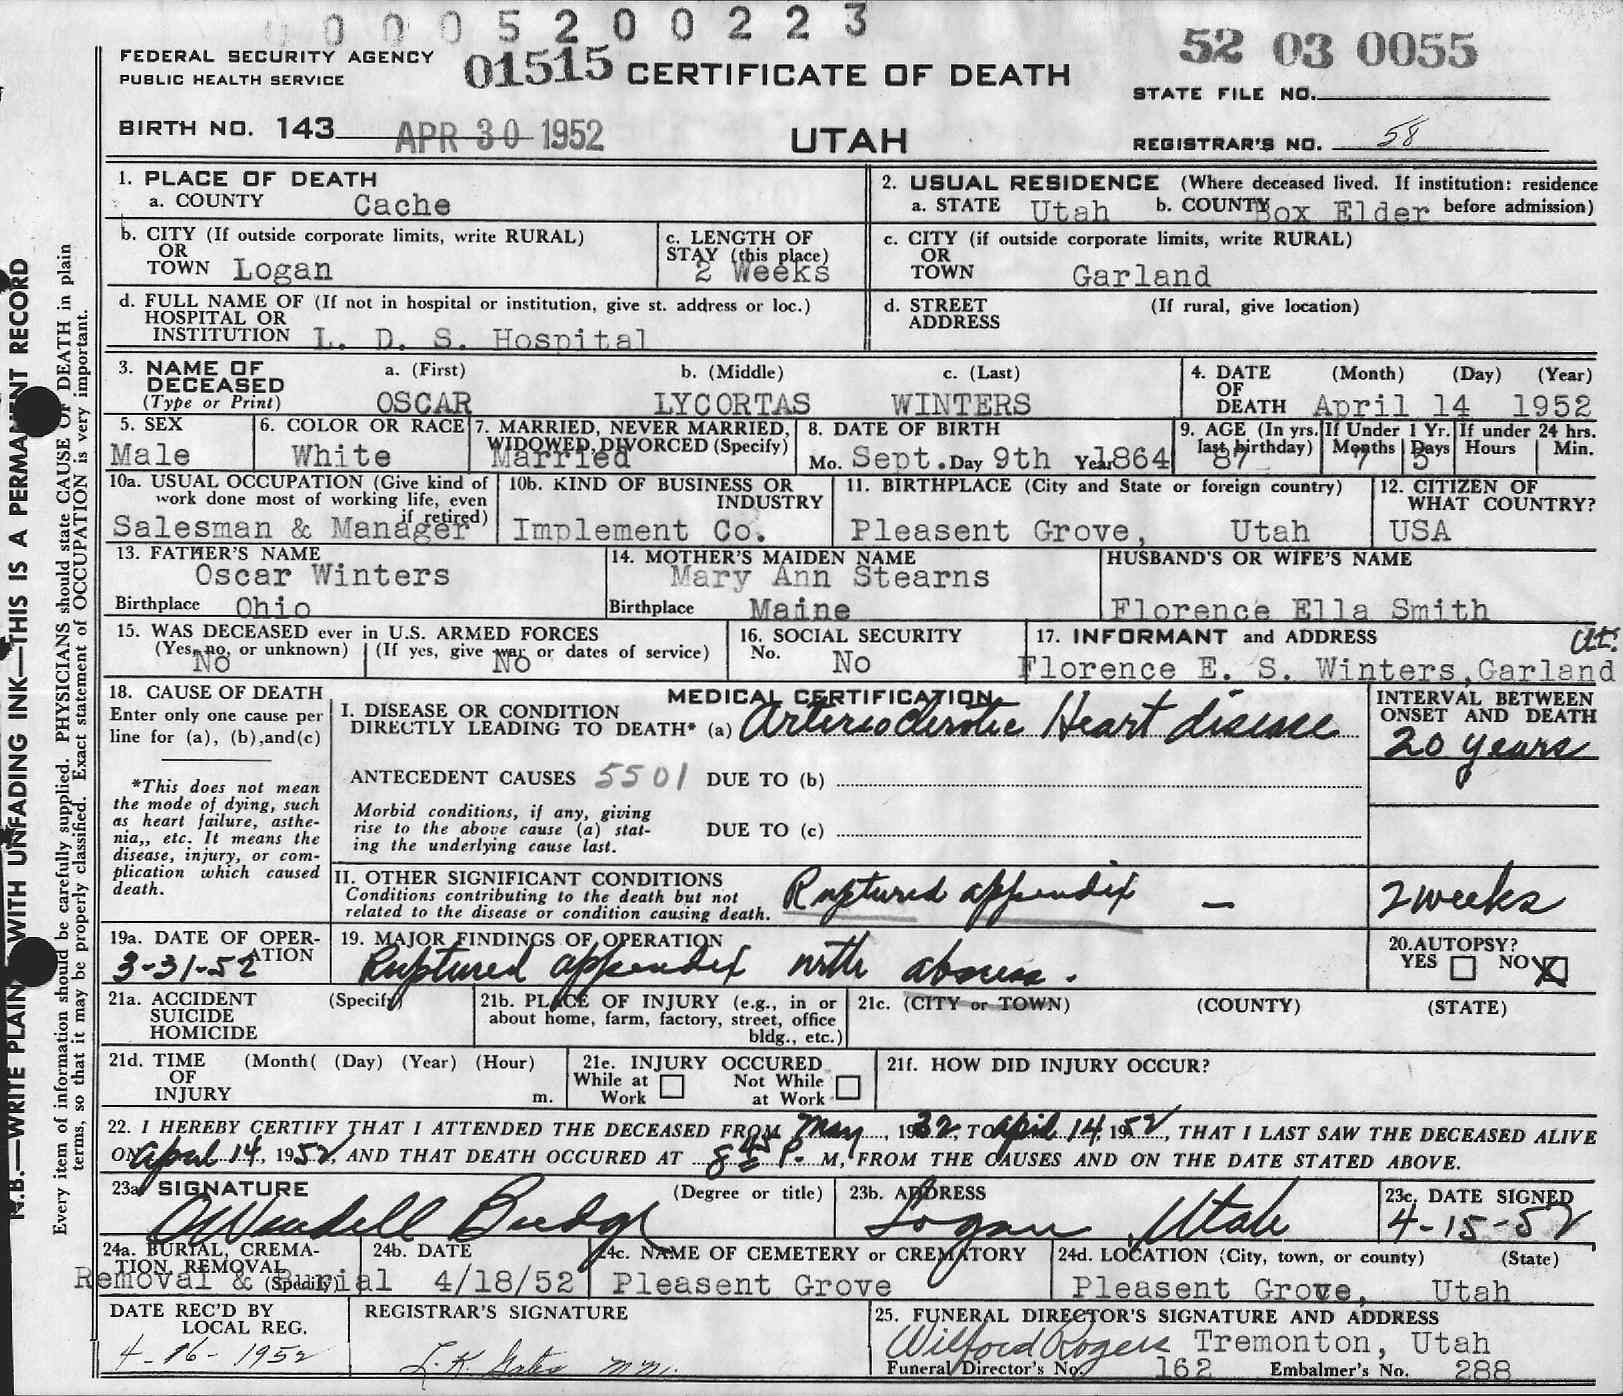 0 0 0 5 2 0 0 2 2 3
FEDERAL SECURITY AGENCY
PUBLIC HEALTH SERVICE
01515 CERTIFICATE OF DEATH
52 03 0055
STATE FILE NO.
BIRTH NO. 143 APR 30 1952
UTAH
REGISTRAR'S NO. 58
1. PLACE OF DEATH
a. COUNTY Cache
2. USUAL RESIDENCE (Where deceased lived. If institution: residence before admission)
a. STATE Utah b. COUNTY Box Elder
b. CITY (If outside corporate limits, write RURAL)
OR
TOWN Logan
c. LENGTH OF
STAY (this place)
2 Weeks
c. CITY (if outside corporate limits, write RURAL)
OR
TOWN Garland
d. FULL NAME OF (If not in hospital or institution, give st. address or loc.)
HOSPITAL OR
INSTITUTION L. D. S. Hospital
d. STREET (If rural, give location)
ADDRESS
3. NAME OF a. (First) b. (Middle) c. (Last)
DECEASED
(Type or Print) OSCAR LYCORTAS WINTERS
4. DATE (Month) (Day) (Year)
OF
DEATH April 14 1952
5. SEX
Male
6. COLOR OR RACE
White
7. MARRIED, NEVER MARRIED,
WIDOWED, DIVORCED (Specify)
Married
8. DATE OF BIRTH
Mo. Sept. Day 9th Year 1864
9. AGE (In yrs. last birthday)
87
If Under 1 Yr.
Months 7 Days 5
If under 24 hrs.
Hours Min.
10a. USUAL OCCUPATION (Give kind of
work done most of working life, even
if retired)
Salesman & Manager
10b. KIND OF BUSINESS OR
INDUSTRY
Implement Co.
11. BIRTHPLACE (City and State or foreign country)
Pleasent Grove, Utah
12. CITIZEN OF
WHAT COUNTRY?
USA
13. FATHER'S NAME
Oscar Winters
Birthplace Ohio
14. MOTHER'S MAIDEN NAME
Mary Ann Stearns
Birthplace Maine
HUSBAND'S OR WIFE'S NAME
Florence Ella Smith
15. WAS DECEASED ever in U.S. ARMED FORCES
(Yes, no, or unknown) (If yes, give war or dates of service)
No No
16. SOCIAL SECURITY
No. No
17. INFORMANT and ADDRESS
Florence E. S. Winters, Garland Ut.
18. CAUSE OF DEATH
Enter only one cause per
line for (a), (b), and (c)
*This does not mean
the mode of dying, such
as heart failure, asthe-
nia,, etc. It means the
disease, injury, or com-
plication which caused
death.
MEDICAL CERTIFICATION
I. DISEASE OR CONDITION
DIRECTLY LEADING TO DEATH* (a) Arteriosclerotic Heart disease
INTERVAL BETWEEN
ONSET AND DEATH
20 years
ANTECEDENT CAUSES 5501 DUE TO (b)
Morbid conditions, if any, giving
rise to the above cause (a) stat-
ing the underlying cause last.
DUE TO (c)
II. OTHER SIGNIFICANT CONDITIONS
Conditions contributing to the death but not
related to the disease or condition causing death.
Ruptured appendix — 2 weeks
19a. DATE OF OPER-
ATION
3-31-52
19. MAJOR FINDINGS OF OPERATION
Ruptured appendix with abscess.
20. AUTOPSY?
YES NO X
21a. ACCIDENT (Specify)
SUICIDE
HOMICIDE
21b. PLACE OF INJURY (e.g., in or
about home, farm, factory, street, office
bldg., etc.)
21c. (CITY or TOWN) (COUNTY) (STATE)
21d. TIME (Month( (Day) (Year) (Hour)
OF
INJURY m.
21e. INJURY OCCURED
While at Work Not While at Work
21f. HOW DID INJURY OCCUR?
22. I HEREBY CERTIFY THAT I ATTENDED THE DECEASED FROM May, 1932, TO April 14, 1952, THAT I LAST SAW THE DECEASED ALIVE
ON April 14, 1952, AND THAT DEATH OCCURED AT 8 45 P. M, FROM THE CAUSES AND ON THE DATE STATED ABOVE.
23a. SIGNATURE (Degree or title)
O Wendell Budge
23b. ADDRESS
Logan, Utah
23c. DATE SIGNED
4-15-52
24a. BURIAL, CREMA-
TION, REMOVAL
(Specify)
Removal & Burial
24b. DATE
4/18/52
24c. NAME OF CEMETERY or CREMATORY
Pleasent Grove
24d. LOCATION (City, town, or county) (State)
Pleasent Grove, Utah
DATE REC'D BY
LOCAL REG.
4-16-1952
REGISTRAR'S SIGNATURE
25. FUNERAL DIRECTOR'S SIGNATURE AND ADDRESS
Wilford Rogers Tremonton, Utah
Funeral Director's No. 162 Embalmer's No. 288
N.B.—WRITE PLAIN WITH UNFADING INK—THIS IS A PERMANENT RECORD
Every item of information should be carefully supplied. PHYSICIANS should state CAUSE OF DEATH in plain
terms, so that it may be properly classified. Exact statement of OCCUPATION is very important.